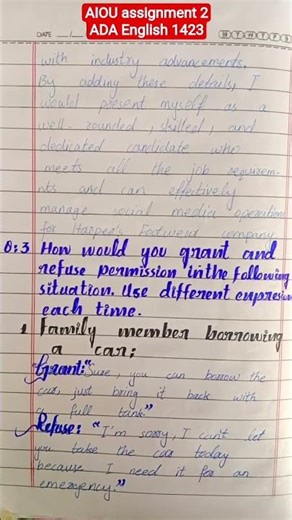 AIOU assignment 2
ADA English 1423
DATE
M T W T F S
with industry advancements.
By adding these details, I
would present myself as a
well-rounded, skilled, and
dedicated candidate who
meets all the job requirem-
nts and can effectively
manage social media operations
for Harper's Footwear company
Q:3 How would you grant and
refuse permission in the following
situation. Use different expression
each time.
1, Family member borrowing
a car;
Grant: "Sure, you can borrow the
car, just bring it back with
a full tank"
Refuse: "I'm sorry, I can't let
you take the car today
because I need it for an
emergency."